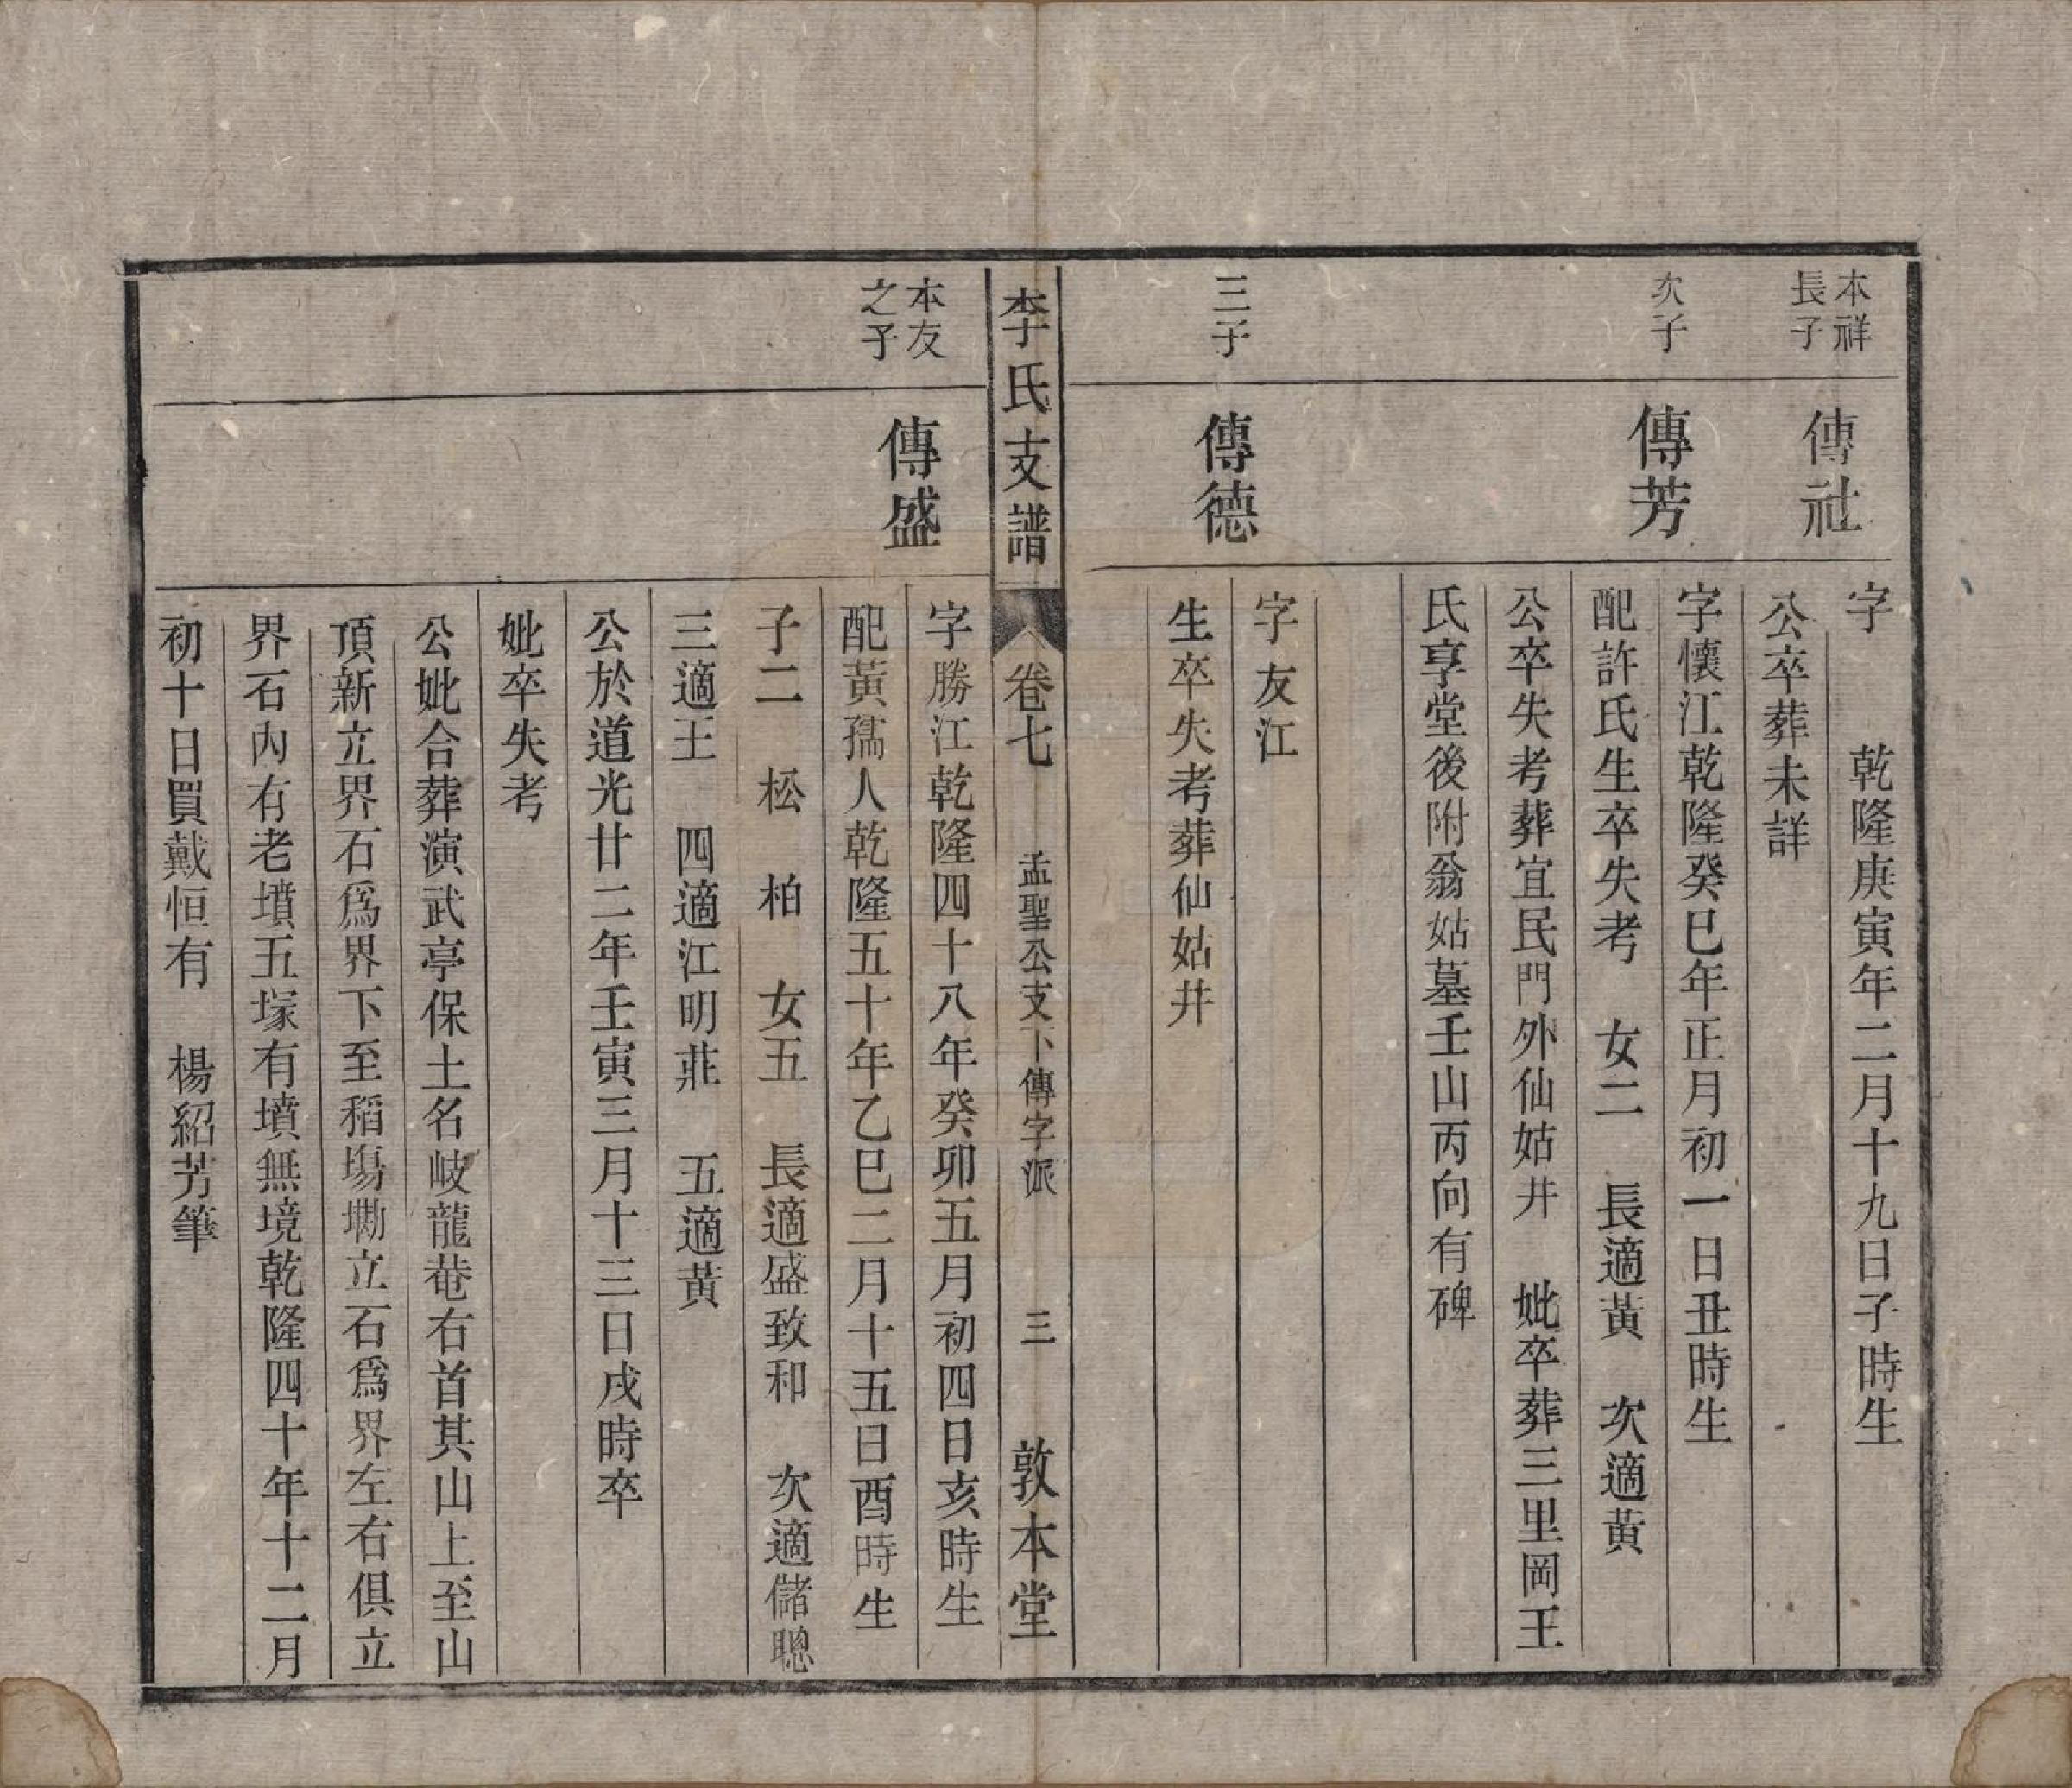 本祥
長子
傳社
字　乾隆庚寅年二月十九日子時生
公卒葬未詳
次子
傳芳
字懷江乾隆癸巳年正月初一日丑時生
配許氏生卒失考　女二　長適黃　次適黃
公卒失考葬宜民門外仙姑井　妣卒葬三里岡王
氏享堂後附翁姑墓壬山丙向有碑
三子
傳德
字友江
生卒失考葬仙姑井
李氏支譜
卷七
孟聖公支下傳字派
三
敦本堂
本友
之子
傳盛
字勝江乾隆四十八年癸卯五月初四日亥時生
配黃孺人乾隆五十年乙巳二月十五日酉時生
子二　松　柏　女五　長適盛致和　次適儲聰
三適王　四適江明莊　五適黃
公於道光廿二年壬寅三月十三日戌時卒
妣卒失考
公妣合葬演武亭保土名岐龍菴右首其山上至山
頂新立界石爲界下至稻塲墈立石爲界左右俱立
界石內有老墳五塚有墳無境乾隆四十年十二月
初十日買戴恒有　楊紹芳筆